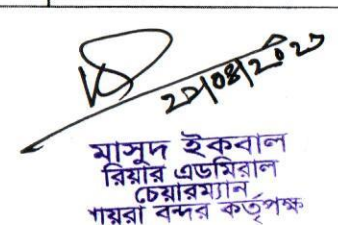 মাসুদ ইকবাল
রিয়ার এডমিরাল
চেয়ারম্যান
পায়রা বন্দর কর্তৃপক্ষ